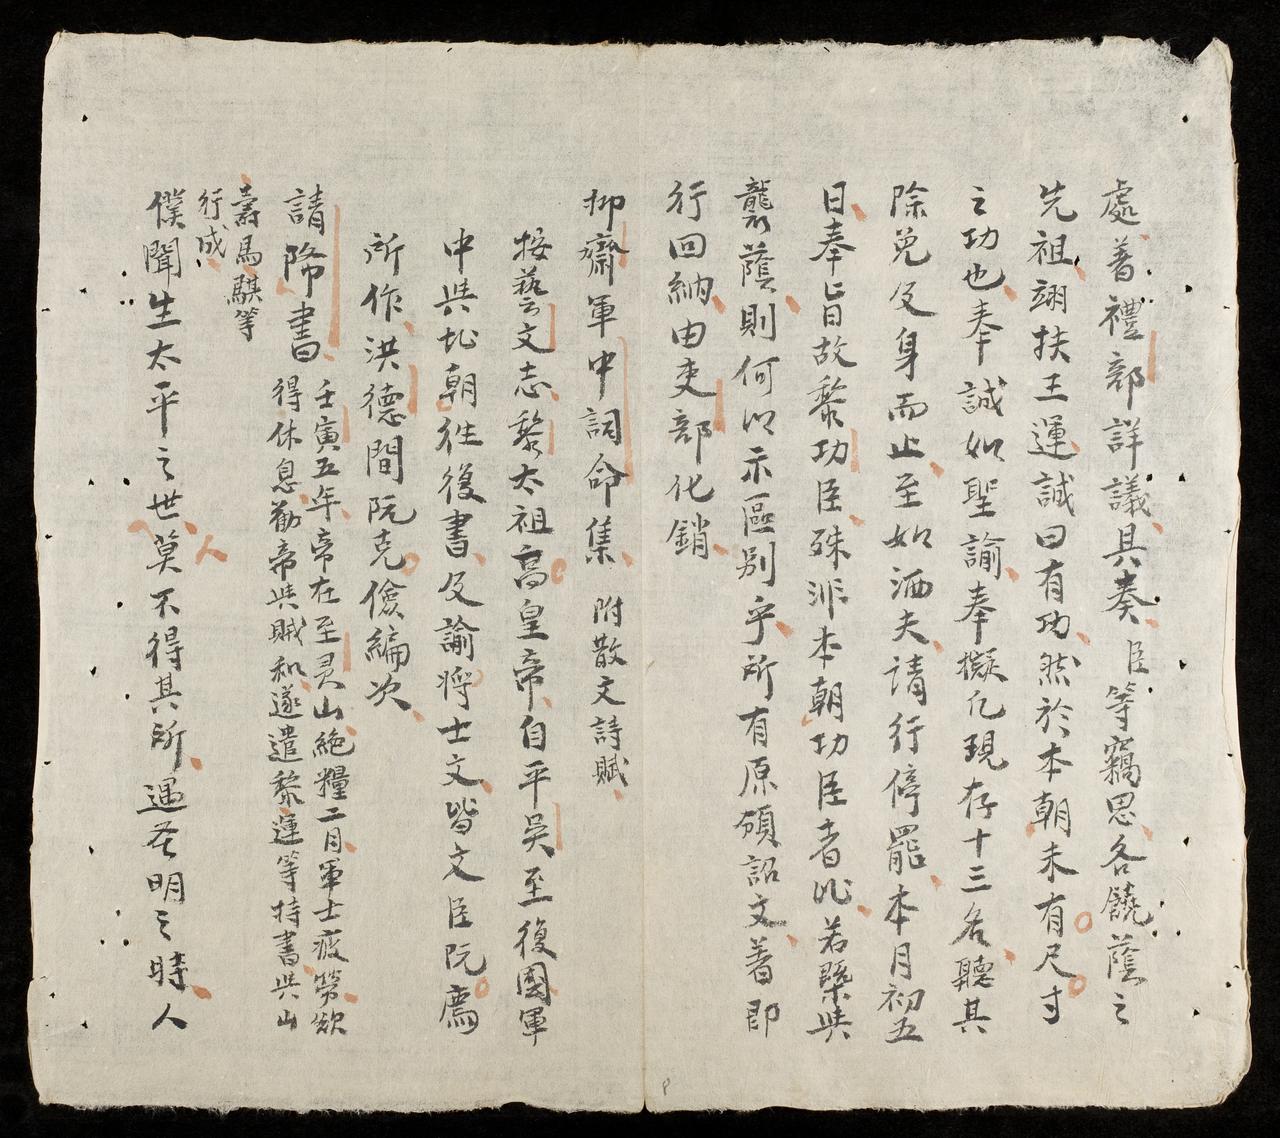 處著禮部詳議具奏臣等竊思各饒蔭之
先祖翊扶王運誠曰有功然於本朝未有尺寸
之功也奉誠如聖諭奉擬凡現存十三名聽其
除免及身而止至如洒夫請行停罷本月初五
日奉旨故黎功臣殊非本朝功臣者比若槩與
襲蔭則何以示區别乎所有原頒詔文著即
行回納由吏部化銷
抑齋軍中詞命集 附散文詩賦
按藝文志黎太祖高皇帝自平吳至復國軍
中與北朝往復書及諭將士文皆文臣阮廌
所作洪德間阮克儉編次
請降書 壬寅五年帝在至灵山絶糧二月軍士疲勞欲
得休息勸帝與賊和遂遣黎運等持書與山
壽馬騏等
行成
僕聞生太平之世莫不得其所遇圣明之時人
人